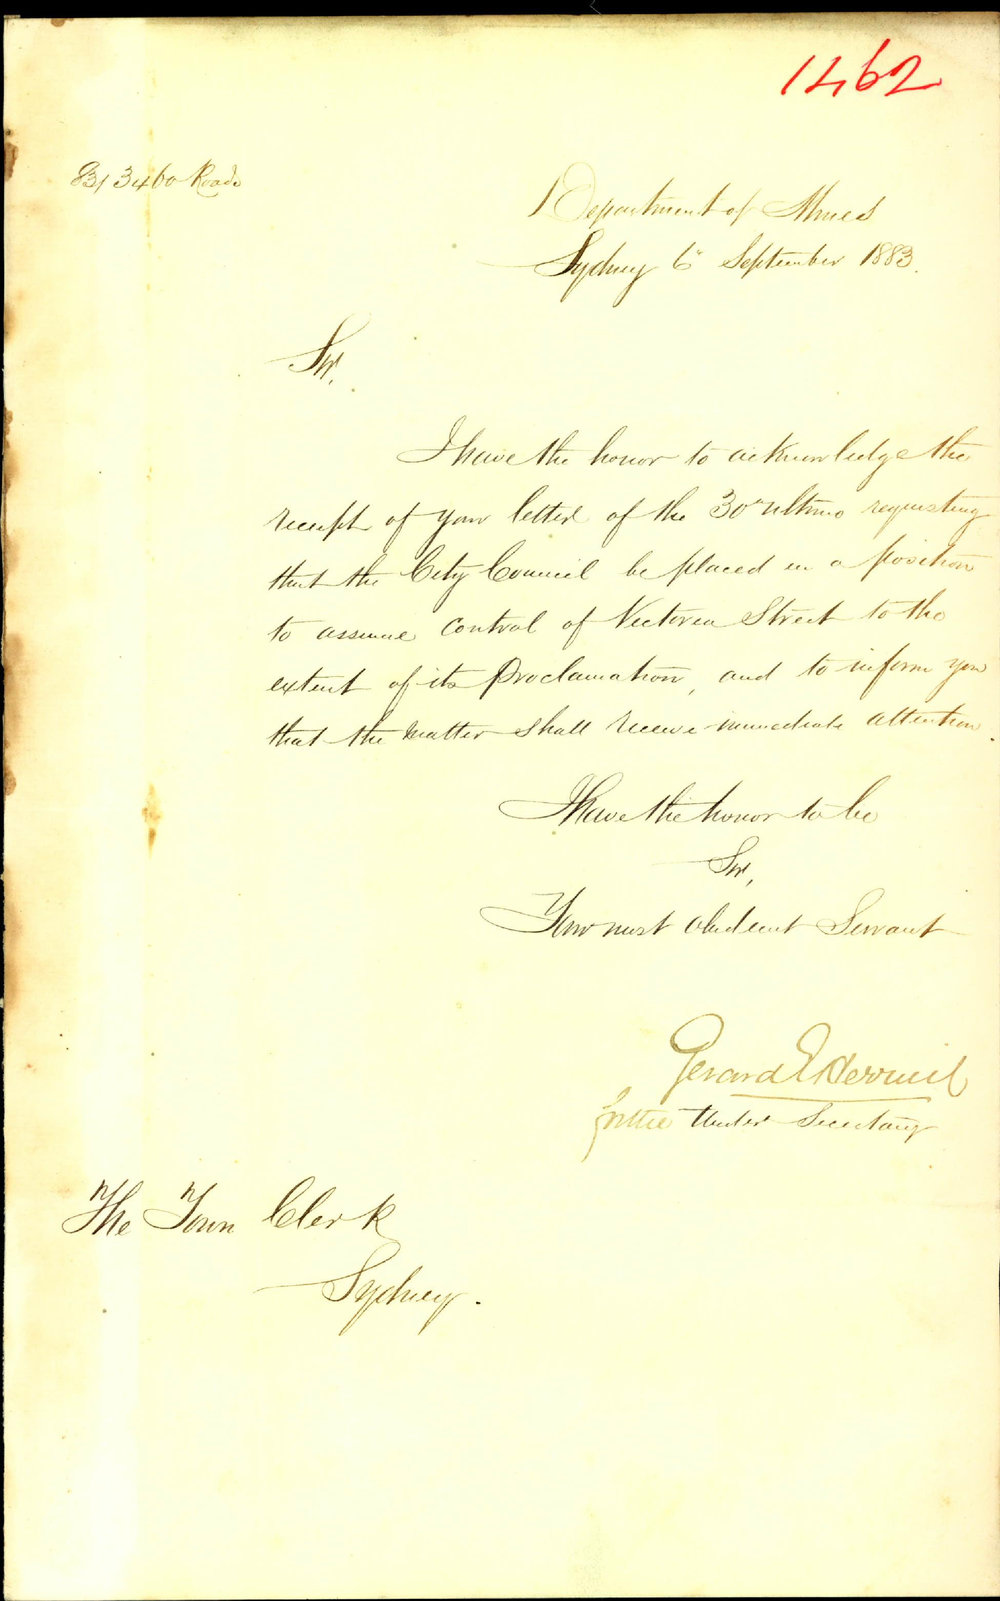 1462
83/3460 Roads
Department of Mines
Sydney 6th September 1883.
Sir,
I have the honor to acknowledge the
receipt of your letter of the 30th ultimo requesting
that the City Council be placed in a position
to assume control of Victoria Street to the
extent of its Proclamation, and to inform you
that the matter shall receive immediate attention.
I have the honor to be
Sir,
Your most obedient Servant
Gerard E Herring
for the Under Secretary
The Town Clerk
Sydney.